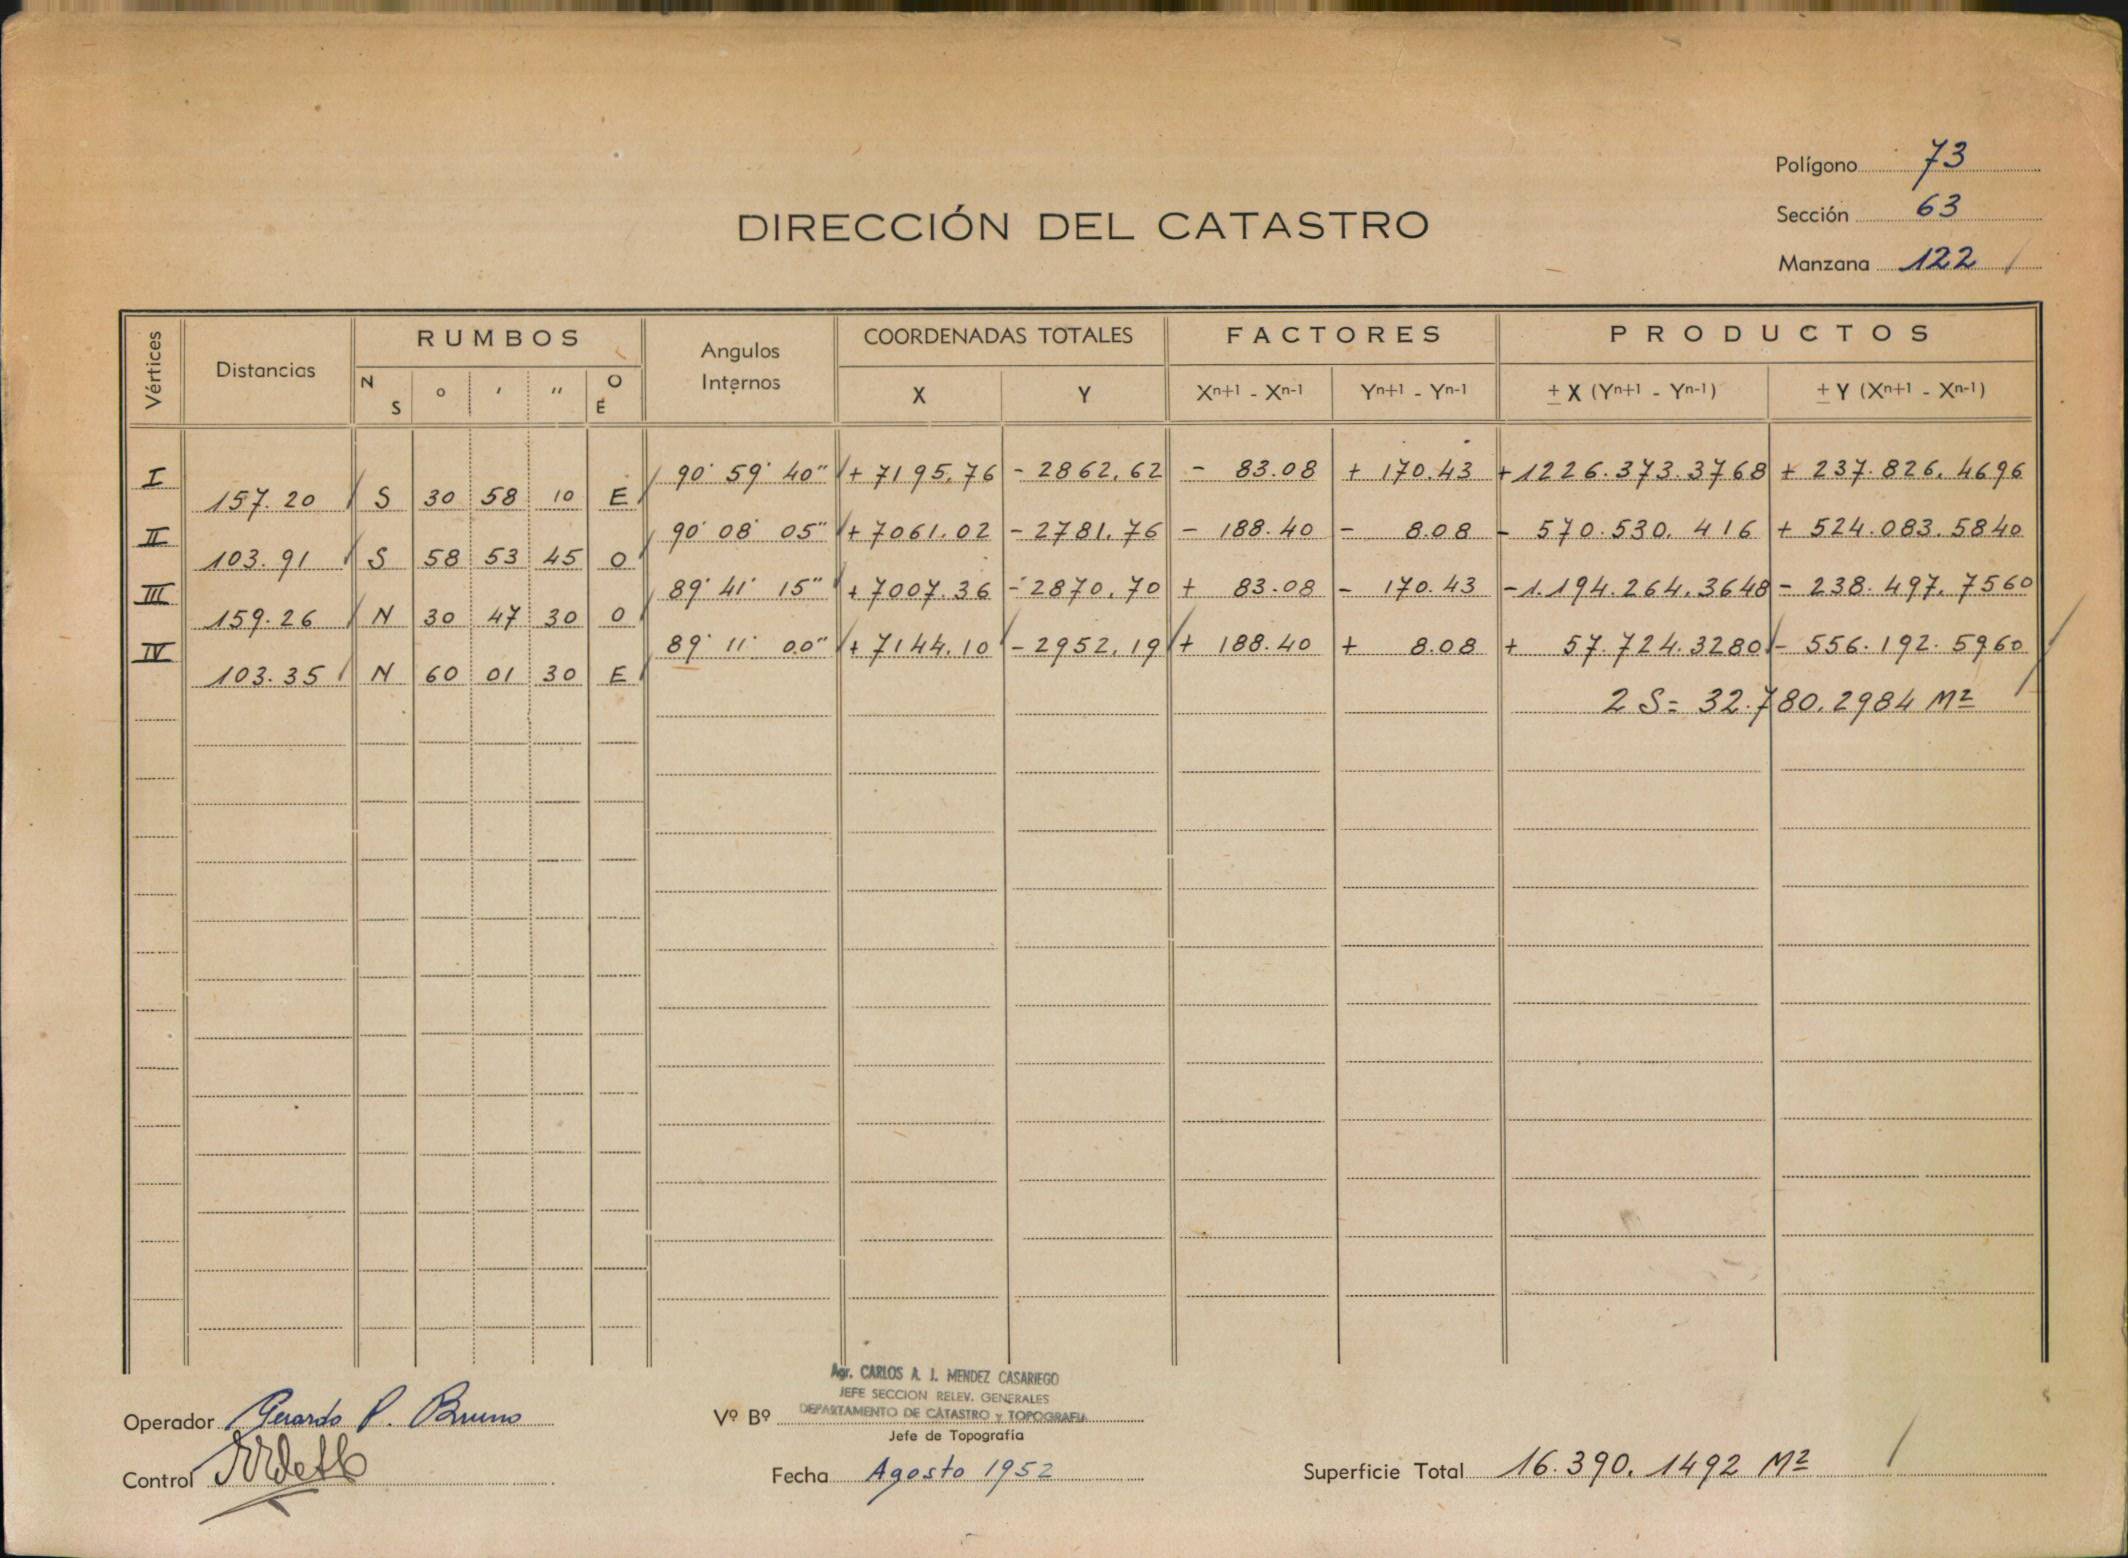 Polígono 73
Sección 63
Manzana 122
DIRECCIÓN DEL CATASTRO
Vértices Distancias RUMBOS Angulos Internos COORDENADAS TOTALES FACTORES PRODUCTOS
N S ° ' " O E X Y Xn+1 - Xn-1 Yn+1 - Yn-1 ± X (Yn+1 - Yn-1) ± Y (Xn+1 - Xn-1)
I 90° 59' 40" + 7195.76 - 2862.62 - 83.08 + 170.43 + 1226.373.3768 + 237.826.4696
157.20 S 30 58 10 E
II 90° 08' 05" + 7061.02 - 2781.76 - 188.40 - 8.08 - 570.530.416 + 524.083.5840
103.91 S 58 53 45 O
III 89° 41' 15" + 7007.36 - 2870.70 + 83.08 - 170.43 - 1.194.264.3648 - 238.497.7560
159.26 N 30 47 30 O
IV 89° 11' 00" + 7144.10 - 2952.19 + 188.40 + 8.08 + 57.724.3280 - 556.192.5960
103.35 N 60 01 30 E
2 S = 32.780.2984 M²
Agr. CARLOS A. J. MENDEZ CASARIEGO
JEFE SECCION RELEV. GENERALES
DEPARTAMENTO DE CATASTRO y TOPOGRAFIA
Operador Gerardo P. Bruno
Vº Bº
Jefe de Topografía
Control
Fecha Agosto 1952
Superficie Total 16.390.1492 M²